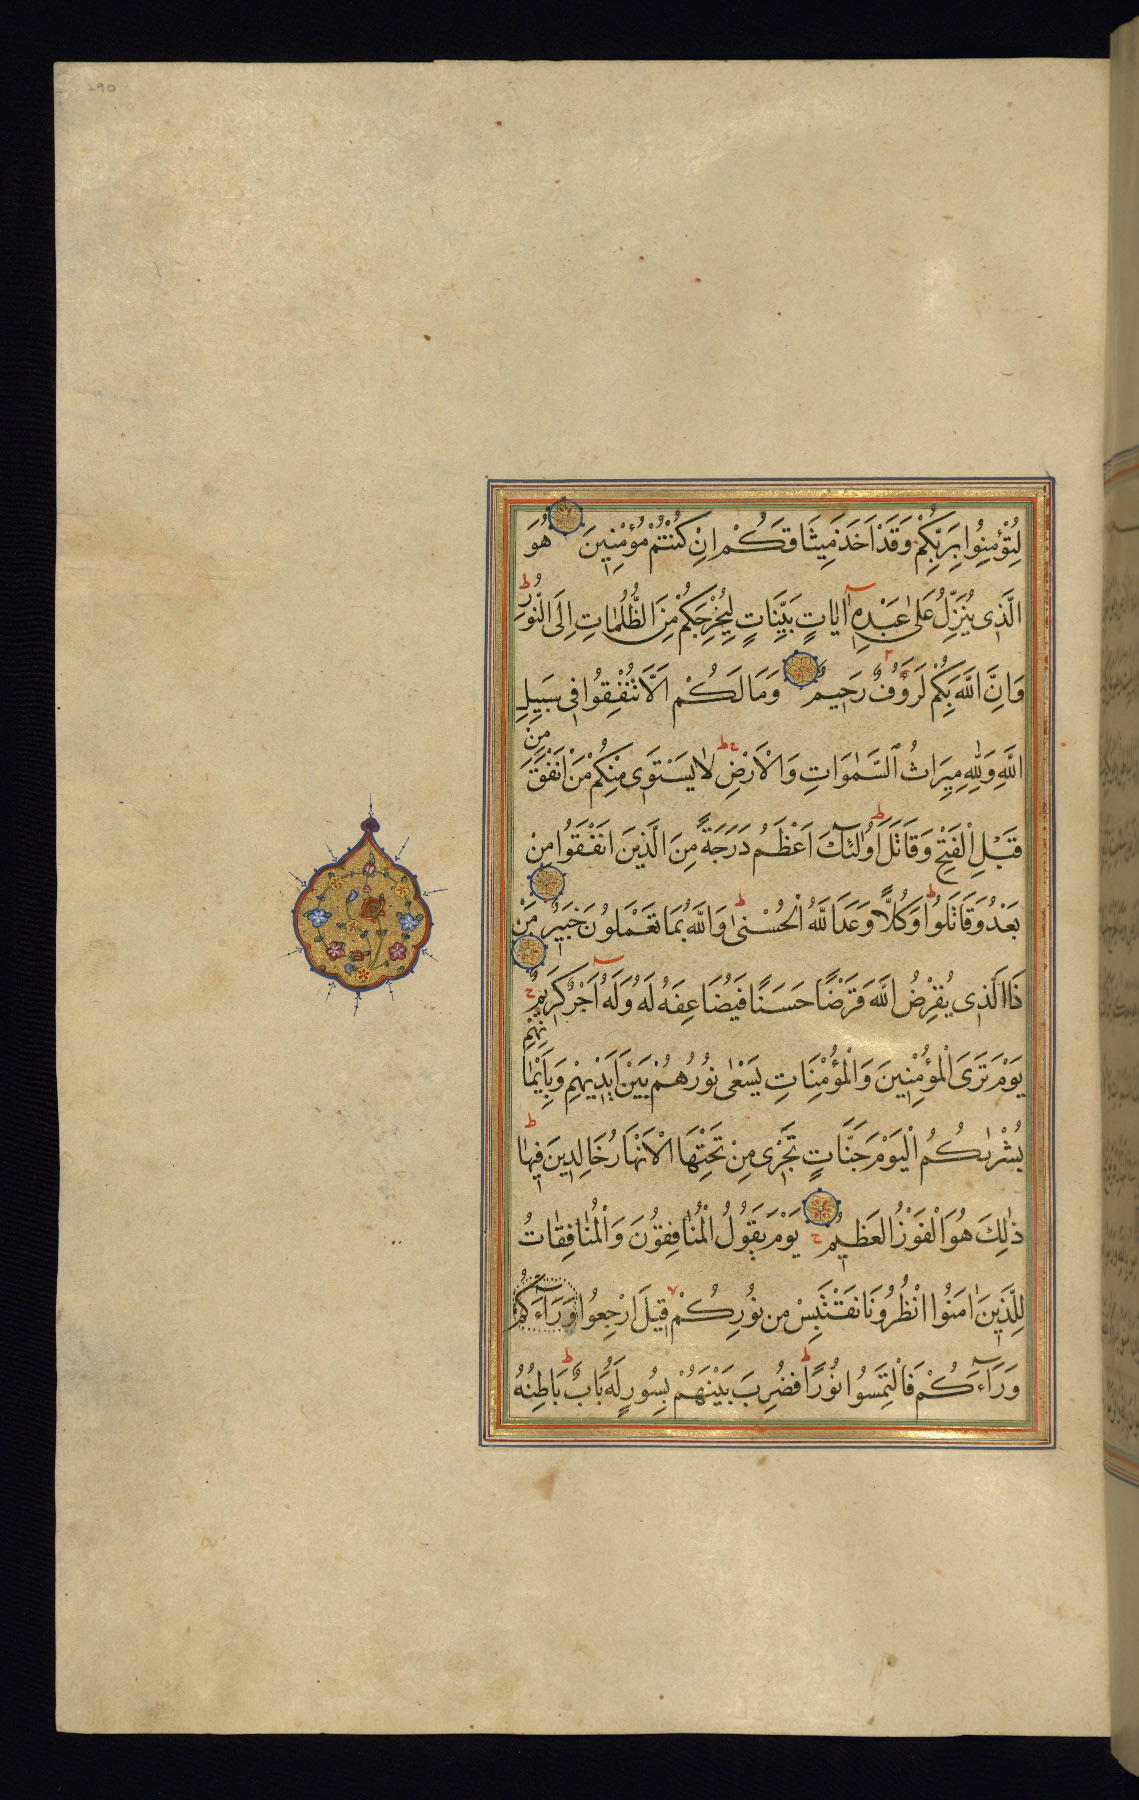 290
لِتُؤْمِنُوا بِرَبِّكُمْ وَقَدْ اَخَذَ مِيثَاقَكُمْ اِنْ كُنْتُمْ مُؤْمِنِينَ هُوَ
الَّذِى يُنَزِّلُ عَلٰى عَبْدِهِ اٰيَاتٍ بَيِّنَاتٍ لِيُخْرِجَكُمْ مِنَ الظُّلُمَاتِ اِلَى النُّورِ ط
وَاِنَّ اللّٰهَ بِكُمْ لَرَؤُفٌ رَحِيمٌ وَمَا لَكُمْ اَلَّا تُنْفِقُوا فِى سَبِيلِ
اللّٰهِ وَلِلّٰهِ مِيرَاثُ السَّمٰوَاتِ وَالْاَرْضِ ط لَا يَسْتَوِى مِنْكُمْ مَنْ اَنْفَقَ مِنْ
قَبْلِ الْفَتْحِ وَقَاتَلَ ط اُولٰئِكَ اَعْظَمُ دَرَجَةً مِنَ الَّذِينَ اَنْفَقُوا مِنْ
بَعْدُ وَقَاتَلُوا ط وَكُلًّا وَعَدَ اللّٰهُ الْحُسْنٰى ط وَاللّٰهُ بِمَا تَعْمَلُونَ خَبِيرٌ مَنْ
ذَا الَّذِى يُقْرِضُ اللّٰهَ قَرْضًا حَسَنًا فَيُضَاعِفَهُ لَهُ وَلَهُ اَجْرٌ كَرِيمٌ ح
يَوْمَ تَرَى الْمُؤْمِنِينَ وَالْمُؤْمِنَاتِ يَسْعٰى نُورُهُمْ بَيْنَ اَيْدِيهِمْ وَبِاَيْمَانِهِمْ
بُشْرٰىكُمُ الْيَوْمَ جَنَّاتٌ تَجْرِى مِنْ تَحْتِهَا الْاَنْهَارُ خَالِدِينَ فِيهَا ط
ذٰلِكَ هُوَ الْفَوْزُ الْعَظِيمُ ح يَوْمَ يَقُولُ الْمُنَافِقُونَ وَالْمُنَافِقَاتُ
لِلَّذِينَ اٰمَنُوا انْظُرُونَا نَقْتَبِسْ مِنْ نُورِكُمْ قِيلَ ارْجِعُوا وَرَآءَكُمْ
وَرَآءَكُمْ فَالْتَمِسُوا نُورًا ط فَضُرِبَ بَيْنَهُمْ بِسُورٍ لَهُ بَابٌ ط بَاطِنُهُ